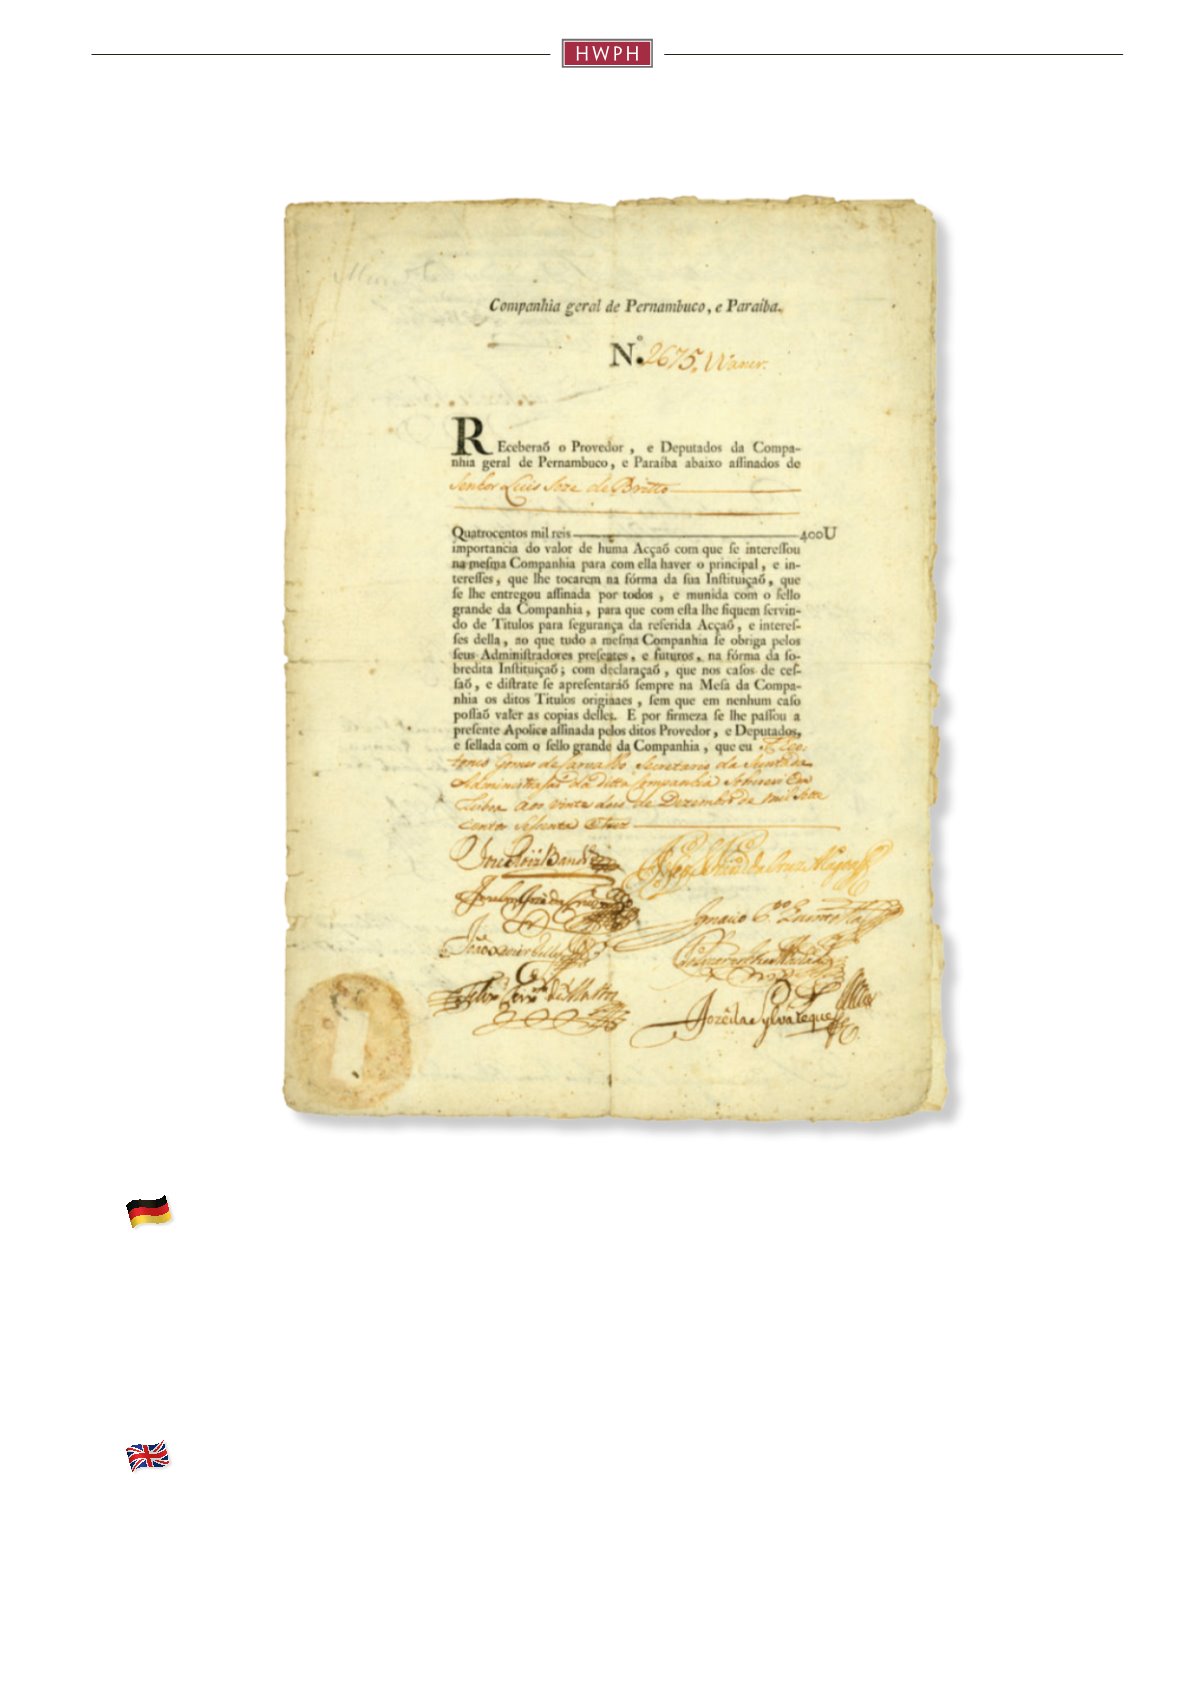 HWPH
Companhia geral de Pernambuco, e Paraíba.
N.º 2675.
REceberaõ o Provedor, e Deputados da Compa-
nhia geral de Pernambuco, e Paraíba abaixo aſſinados do
Senhor Luis Joze de Britto
Quatrocentos mil reis 400U
importancia do valor de huma Acçaõ com que ſe intereſſou
na meſma Companhia para com ella haver o principal, e in-
tereſſes, que lhe tocarem na fórma da ſua Inſtituiçaõ, que
ſe lhe entregou aſſinada por todos, e munida com o ſello
grande da Companhia, para que com eſta lhe fiquem ſervin-
do de Titulos para ſegurança da referida Acçaõ, e intereſ-
ſes della, ao que tudo a meſma Companhia ſe obriga pelos
ſeus Adminiſtradores preſentes, e futuros, na fórma da ſo-
bredita Inſtituiçaõ; com declaraçaõ, que nos caſos de ceſ-
ſaõ, e diſtrate ſe apreſentaráõ ſempre na Meſa da Compa-
nhia os ditos Titulos originaes, ſem que em nenhum caſo
poſſaõ valer as copias delles. E por firmeza ſe lhe paſſou a
preſente Apolice aſſinada pelos ditos Provedor, e Deputados,
e ſellada com o ſello grande da Companhia, que eu
Gomes de Carvalho Secretario da Junta da
da ditta Companhia
Lisboa aos vinte dois de Dezembro de mil sete
centos sesenta